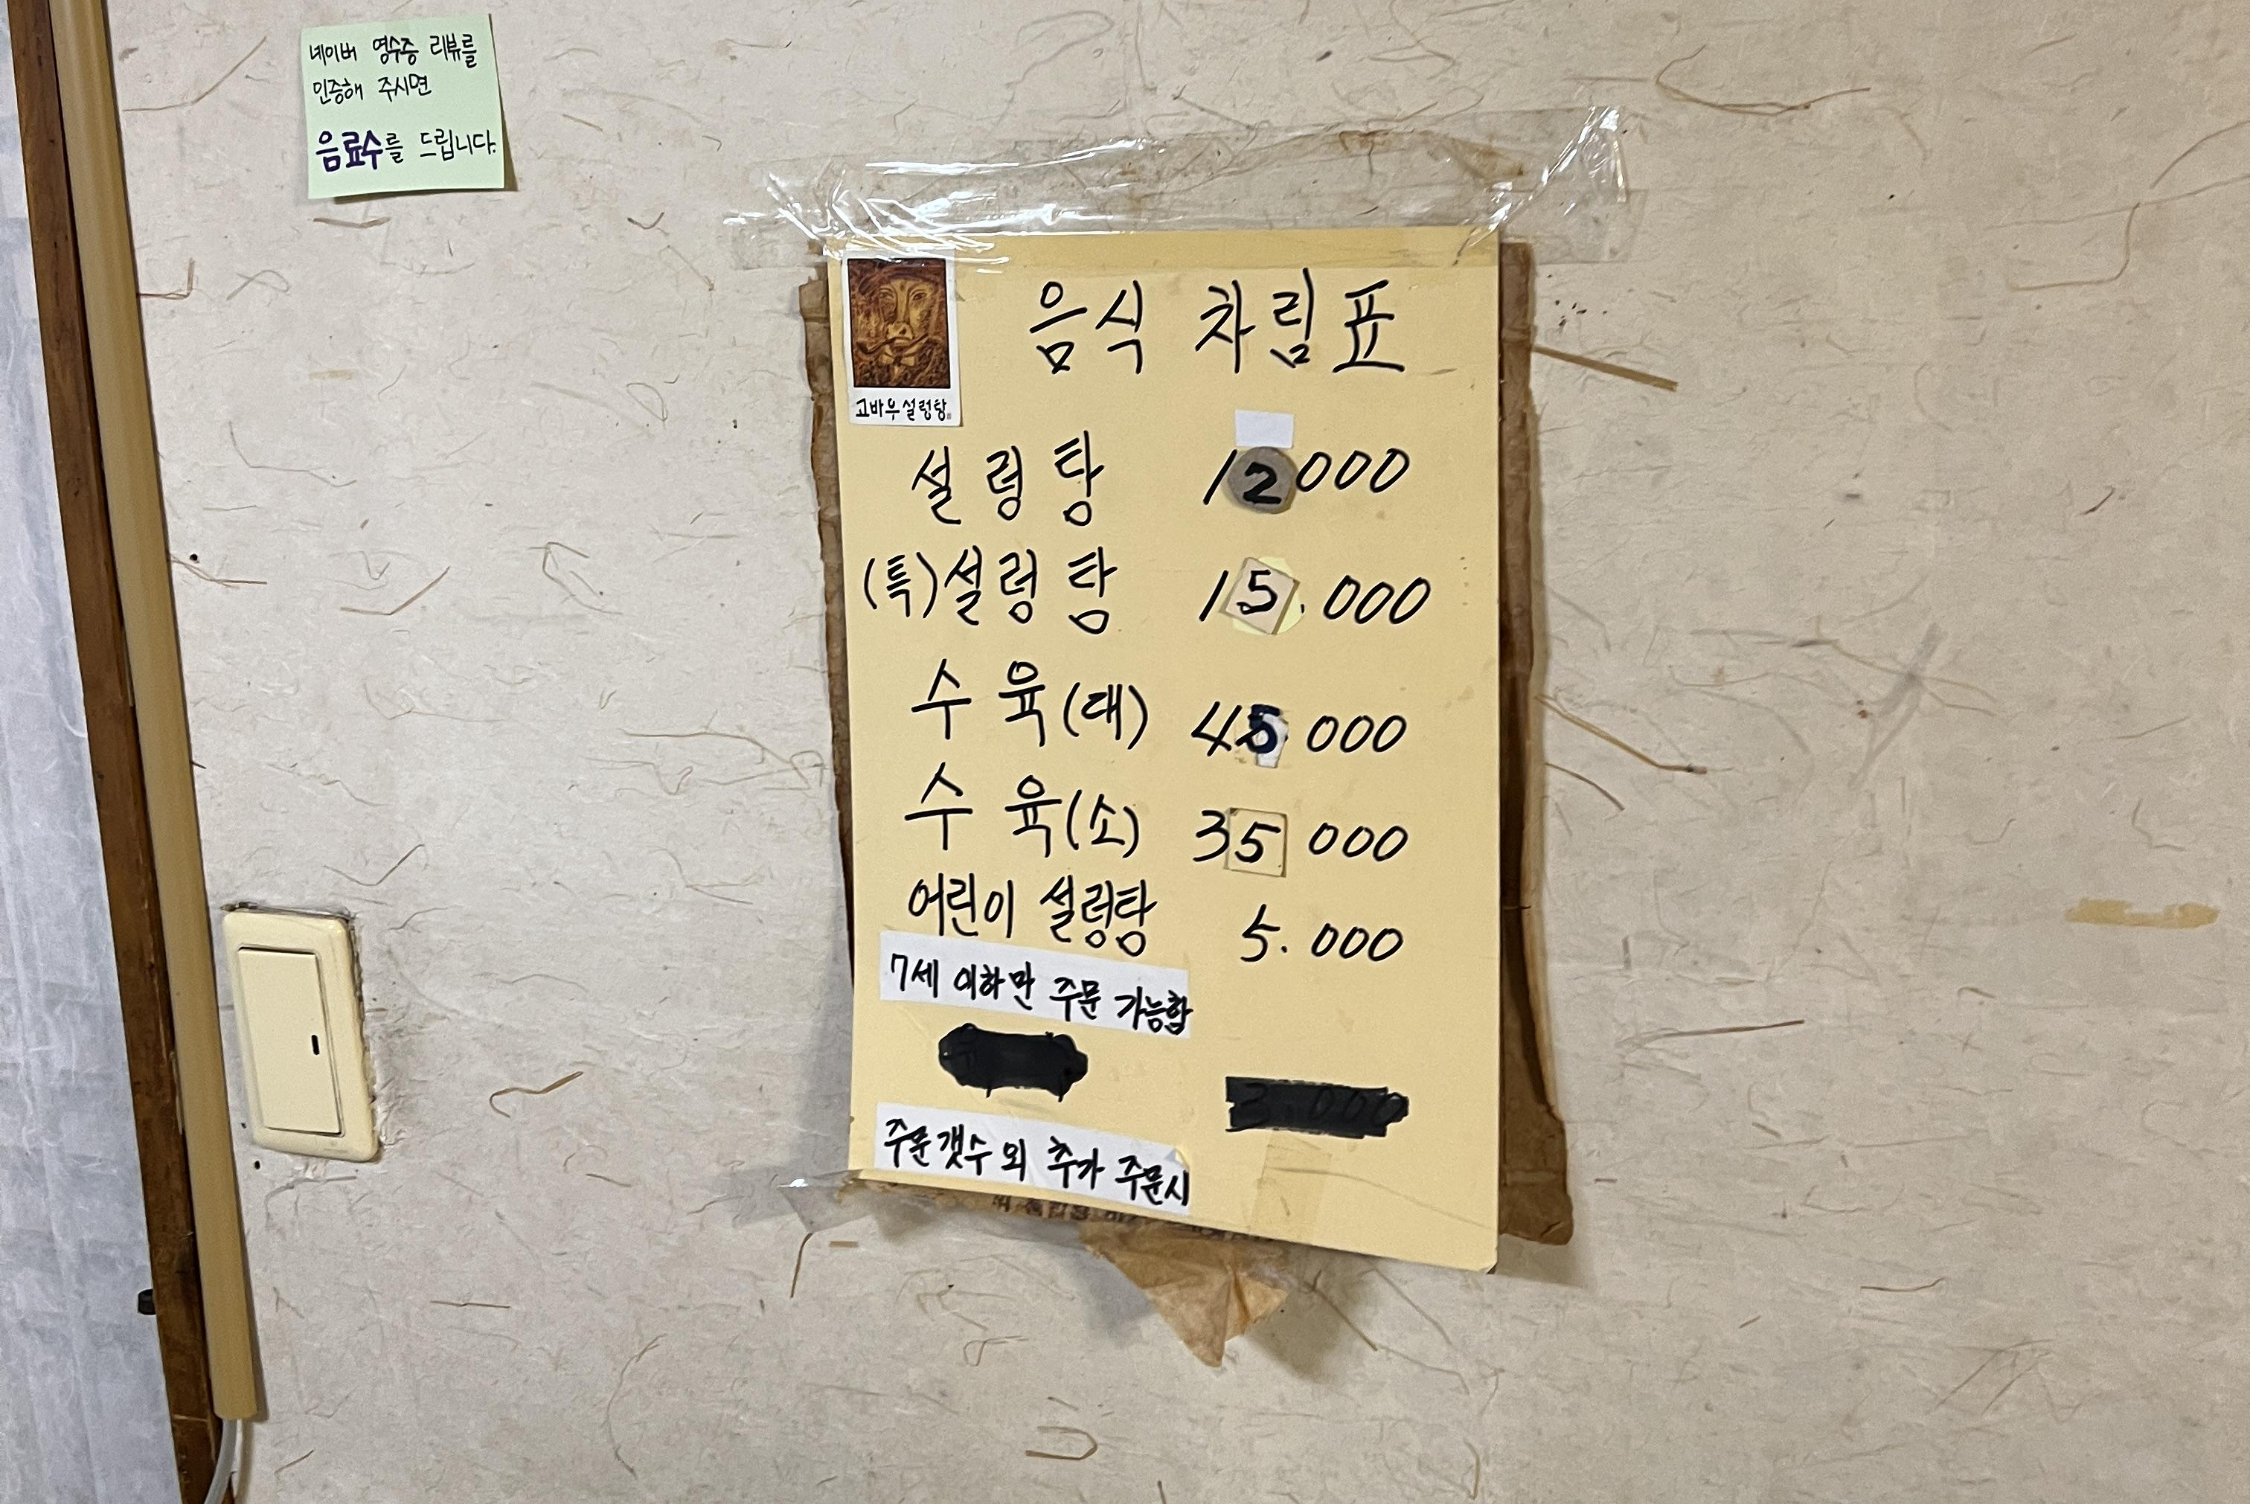 네이버 영수증 리뷰를
인증해 주시면
음료수를 드립니다.
고바우설렁탕
음식 차림표
설렁탕 12000
(특)설렁탕 15.000
수육(대) 45000
수육(소) 35000
어린이 설렁탕 5.000
7세 이하만 주문 가능함
주문갯수 외 추가 주문시